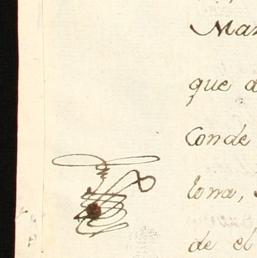 Mar
que d
Conde
lona,
de el